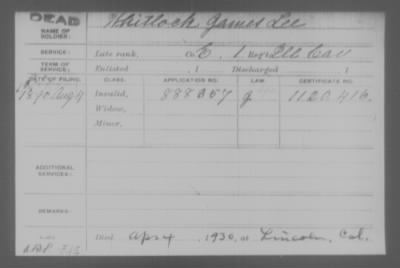 DEAD
NAME OF SOLDIER: Whitlock, James Lee
SERVICE: Late rank, Co. E, 1 Reg't Ill Cav
TERM OF SERVICE: Enlisted , 1 Discharged , 1
DATE OF FILING. CLASS. APPLICATION NO. LAW. CERTIFICATE NO.
1890 Aug 4 Invalid, 888257 g 1120416.
Widow,
Minor,
ADDITIONAL SERVICES:
REMARKS:
Died Apr 4, 1930, at Lincoln, Cal.